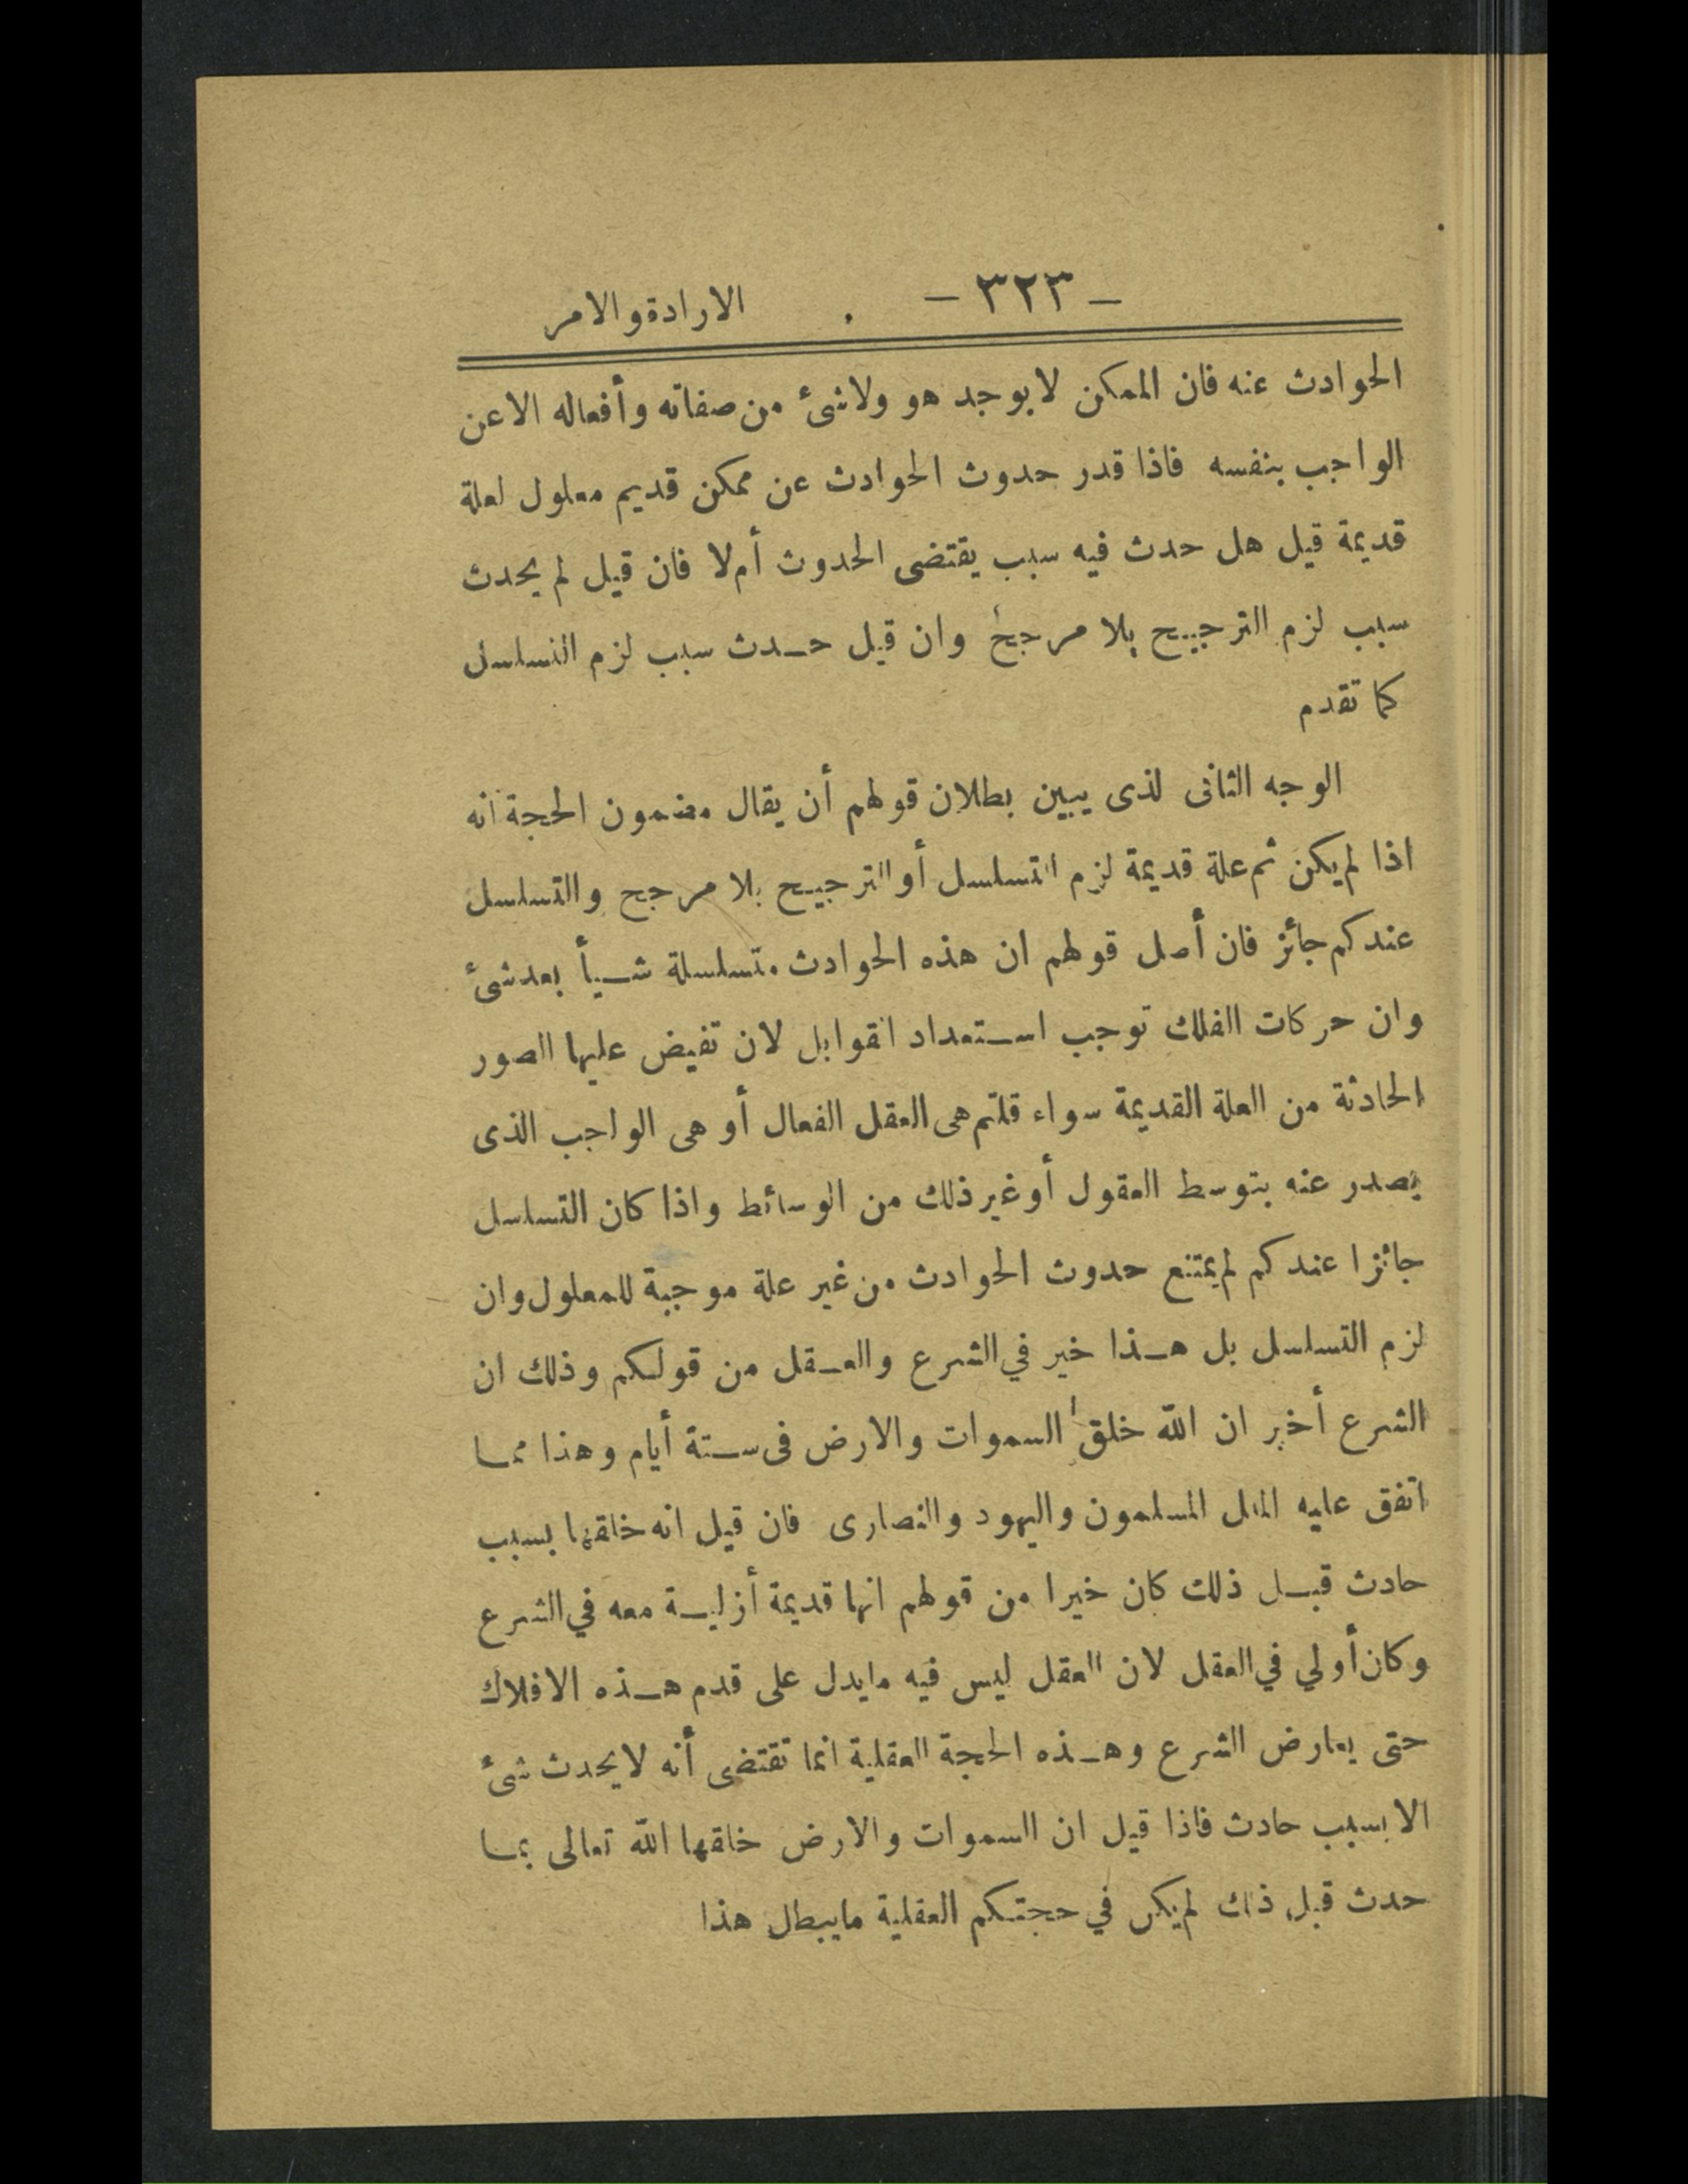 – ٣٢٣ – الارادة والامر
الحوادث عنه فان الممكن لا يوجد هو ولا شئ من صفاته وأفعاله الا عن
الواجب بنفسه فاذا قدر حدوث الحوادث عن ممكن قديم معلول لعلة
قديمة قيل هل حدث فيه سبب يقتضى الحدوث أم لا فان قيل لم يحدث
سبب لزم الترجيح بلا مرجح وان قيل حدث سبب لزم التسلسل
كما تقدم
الوجه الثانى لذى يبين بطلان قولهم أن يقال مضمون الحجة انه
اذا لم يكن ثم علة قديمة لزم التسلسل أو الترجيح بلا مرجح والتسلسل
عندكم جائز فان أصل قولهم ان هذه الحوادث متسلسلة شيأ بعد شئ
وان حركات الفلك توجب استعداد القوابل لان تفيض عليها الصور
الحادثة من العلة القديمة سواء قلتم هى العقل الفعال أو هى الواجب الذى
يصدر عنه بتوسط العقول أو غير ذلك من الوسائط واذا كان التسلسل
جائزا عندكم لم يمتنع حدوث الحوادث من غير علة موجبة للمعلول وان
لزم التسلسل بل هذا خير في الشرع والعقل من قولكم وذلك ان
الشرع أخبر ان الله خلق السموات والارض فى ستة أيام وهذا مما
اتفق عليه الملل المسلمون واليهود والنصارى فان قيل انه خلقها بسبب
حادث قبل ذلك كان خيرا من قولهم انها قديمة أزلية معه في الشرع
وكان أولي في العقل لان العقل ليس فيه ما يدل على قدم هذه الافلاك
حتى يعارض الشرع وهذه الحجة العقلية انما تقتضى أنه لا يحدث شئ
الا بسبب حادث فاذا قيل ان السموات والارض خلقها الله تعالى بما
حدث قبل ذلك لم يكن في حجتكم العقلية ما يبطل هذا